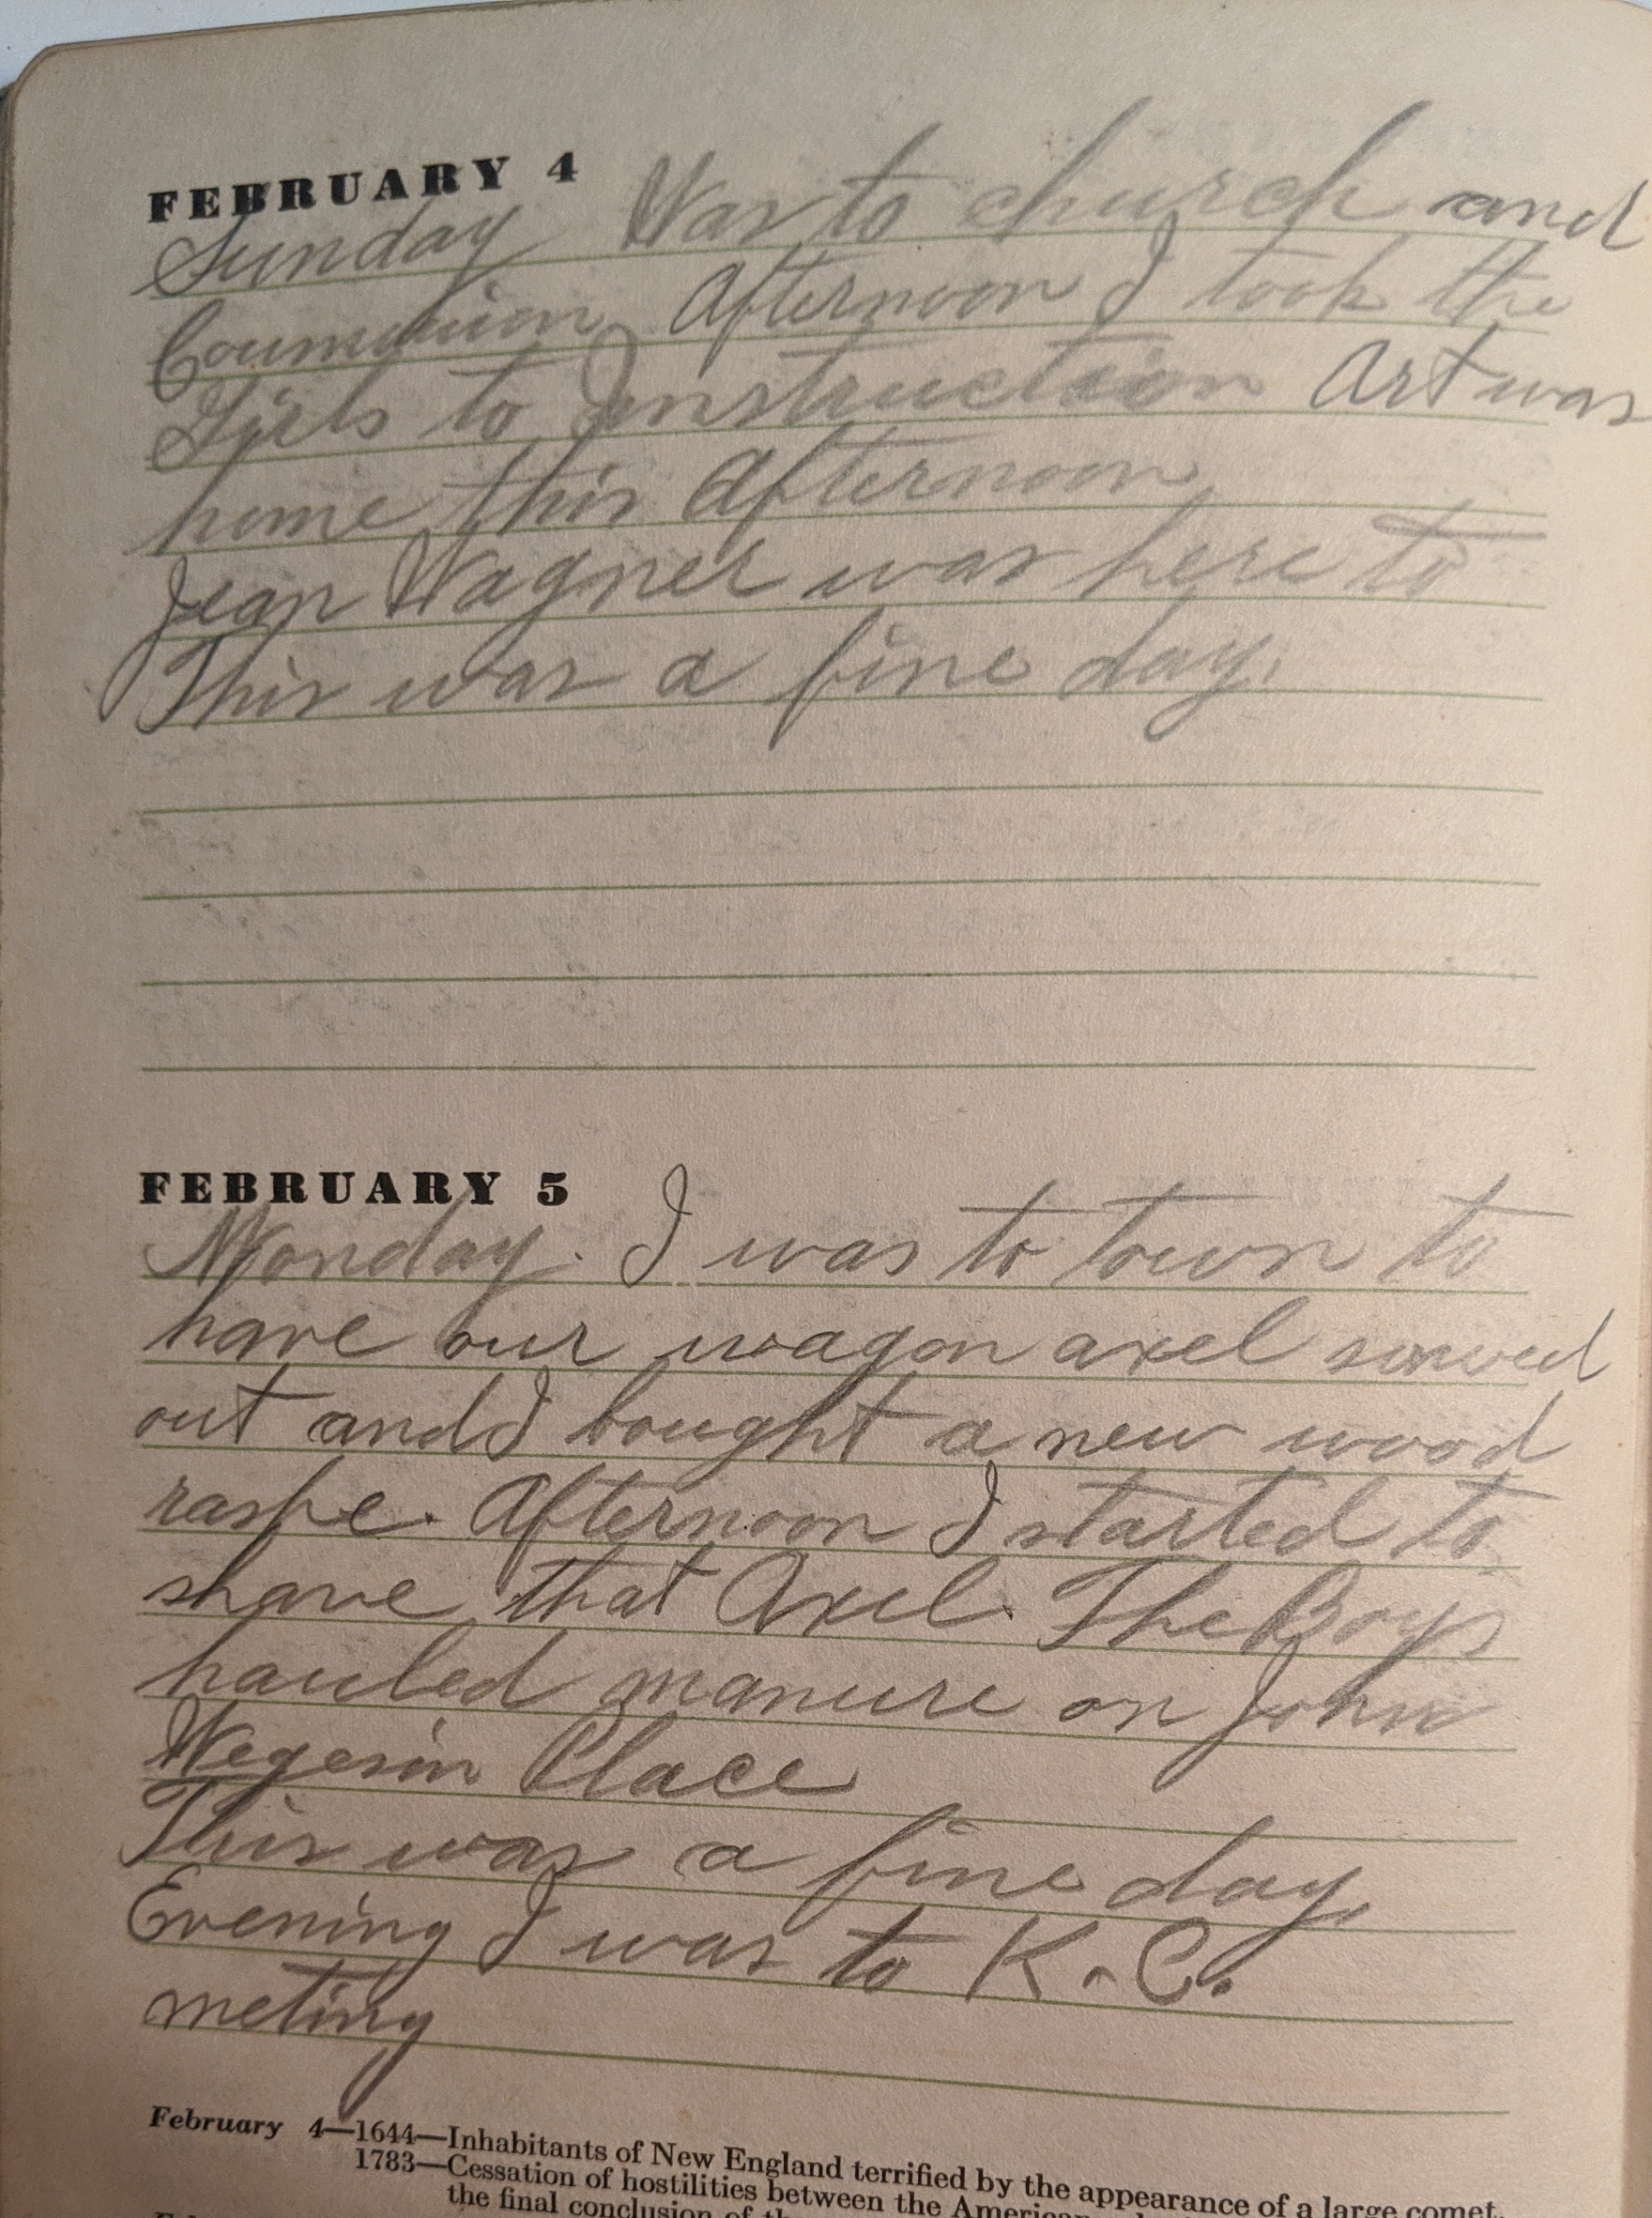 FEBRUARY 4
Sunday Was to church and
Coummunion Afternoon I took the
Girls to Innstruction Art was
home this Afternoon
Jean Wagner was here to
This was a fine day.
FEBRUARY 5
Monday. I was to town to
have our wagon axel sawed
out and I bought a new wood
raspe. Afternoon I started to
shave that Axel. The Boys
hauled manure on John
Wegesin Place
This was a fine day,
Evening I was to K. C.
meting
February 4—1644—Inhabitants of New England terrified by the appearance of a large comet.
1783—Cessation of hostilities between the
the final conclusion of